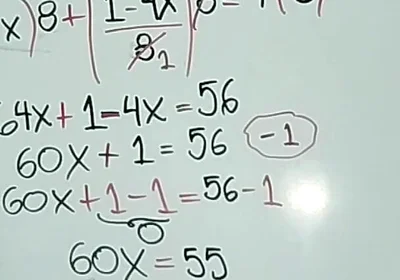 x)8+(1-4x/8 1)8=
64x+1-4x=56
60x+1=56 -1
60x+1-1=56-1
0
60x=55